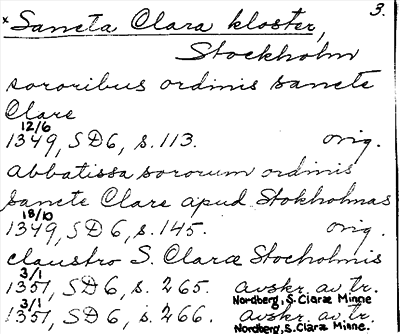 3.
× Sancta Clara kloster,
Stockholm
sororibus ordinis sancte
Clare
12/6
1349, SD6, s. 113. orig.
abbatissa sororum ordinis
sancte Clare apud Stokholmas
18/10
1349, SD6, s. 145. orig.
claustro S. Claræ Stocholmis
3/1
1351, SD6, s. 265. avskr. av tr.
Nordberg, S. Claræ Minne
3/1
1351, SD6, s. 266. avskr. av tr.
Nordberg, S. Claræ Minne.